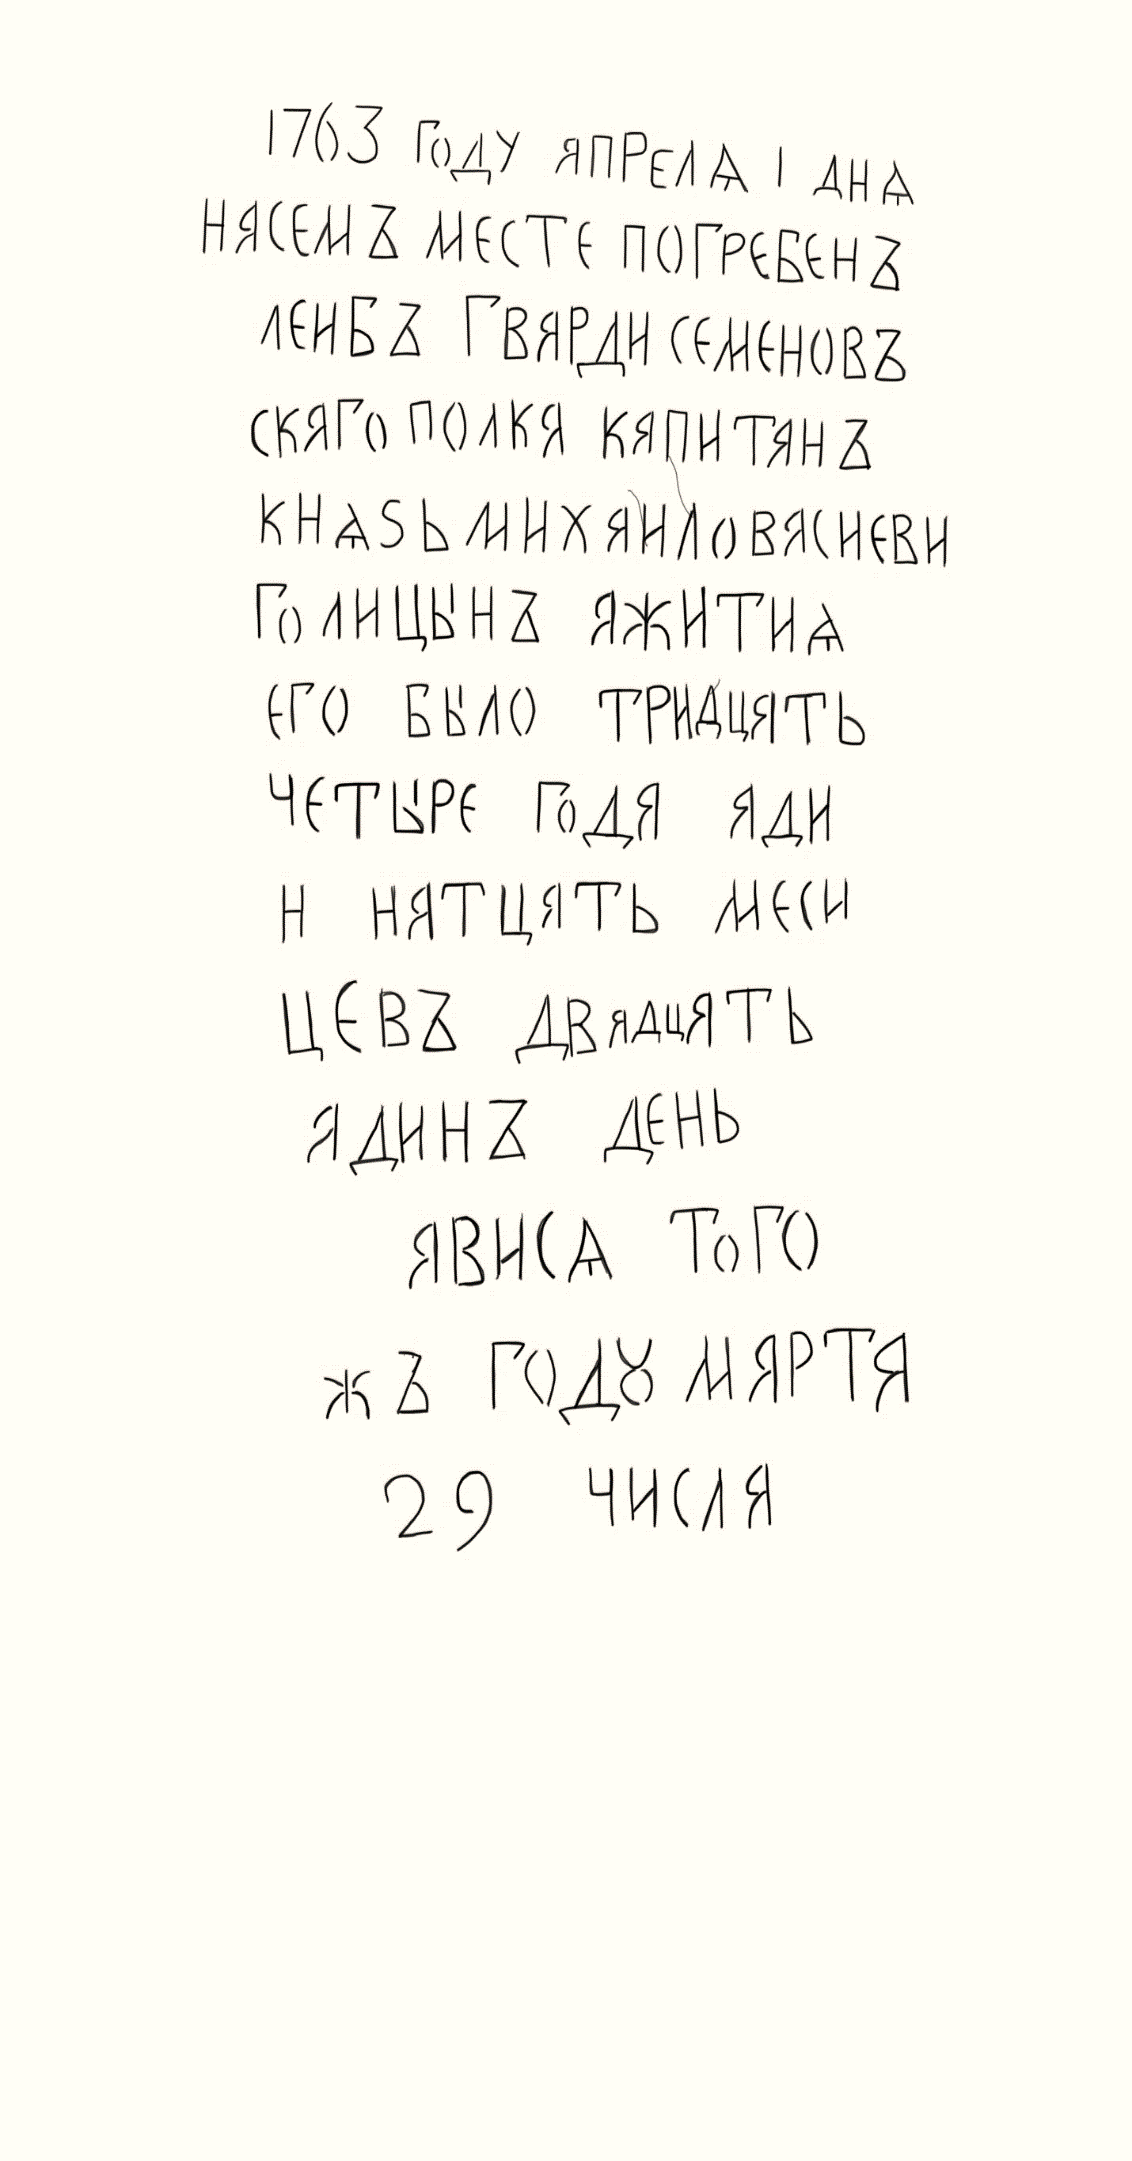 1763 ГОДУ АПРЕЛѦ 1 ДНѦ
НАСЕМЪ МЕСТЕ ПОГРЕБЕНЪ
ЛЕИБЪ ГВАРДИ СЕМЕНОВЪ
СКАГО ПОЛКА КАПИТАНЪ
КНѦЅЬ МИХАИЛО ВАСИЕВИ
ГОЛИЦЫНЪ АЖИТИѦ
ЕГО БЫЛО ТРИДЦАТЬ
ЧЕТЫРЕ ГОДА АДИ
Н НАТЦАТЬ МЕСИ
ЦЕВЪ ДВАДЦАТЬ
АДИНЪ ДЕНЬ
АВИСѦ ТОГО
ЖЪ ГОДꙊ МАРТА
29 ЧИСЛА